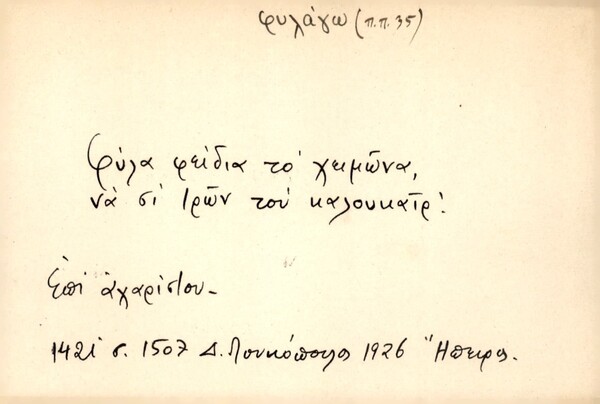 φυλάγω (π.π. 35)
Φύλα φείδια το' χειμῶνα,
νὰ σὶ τρῶν τοὺ καλουκαῖρ'.
Ἐπὶ ἀχαρίστου.
1421 σ. 1507 Δ. Λουκόπουλος 1926 Ἤπειρος.